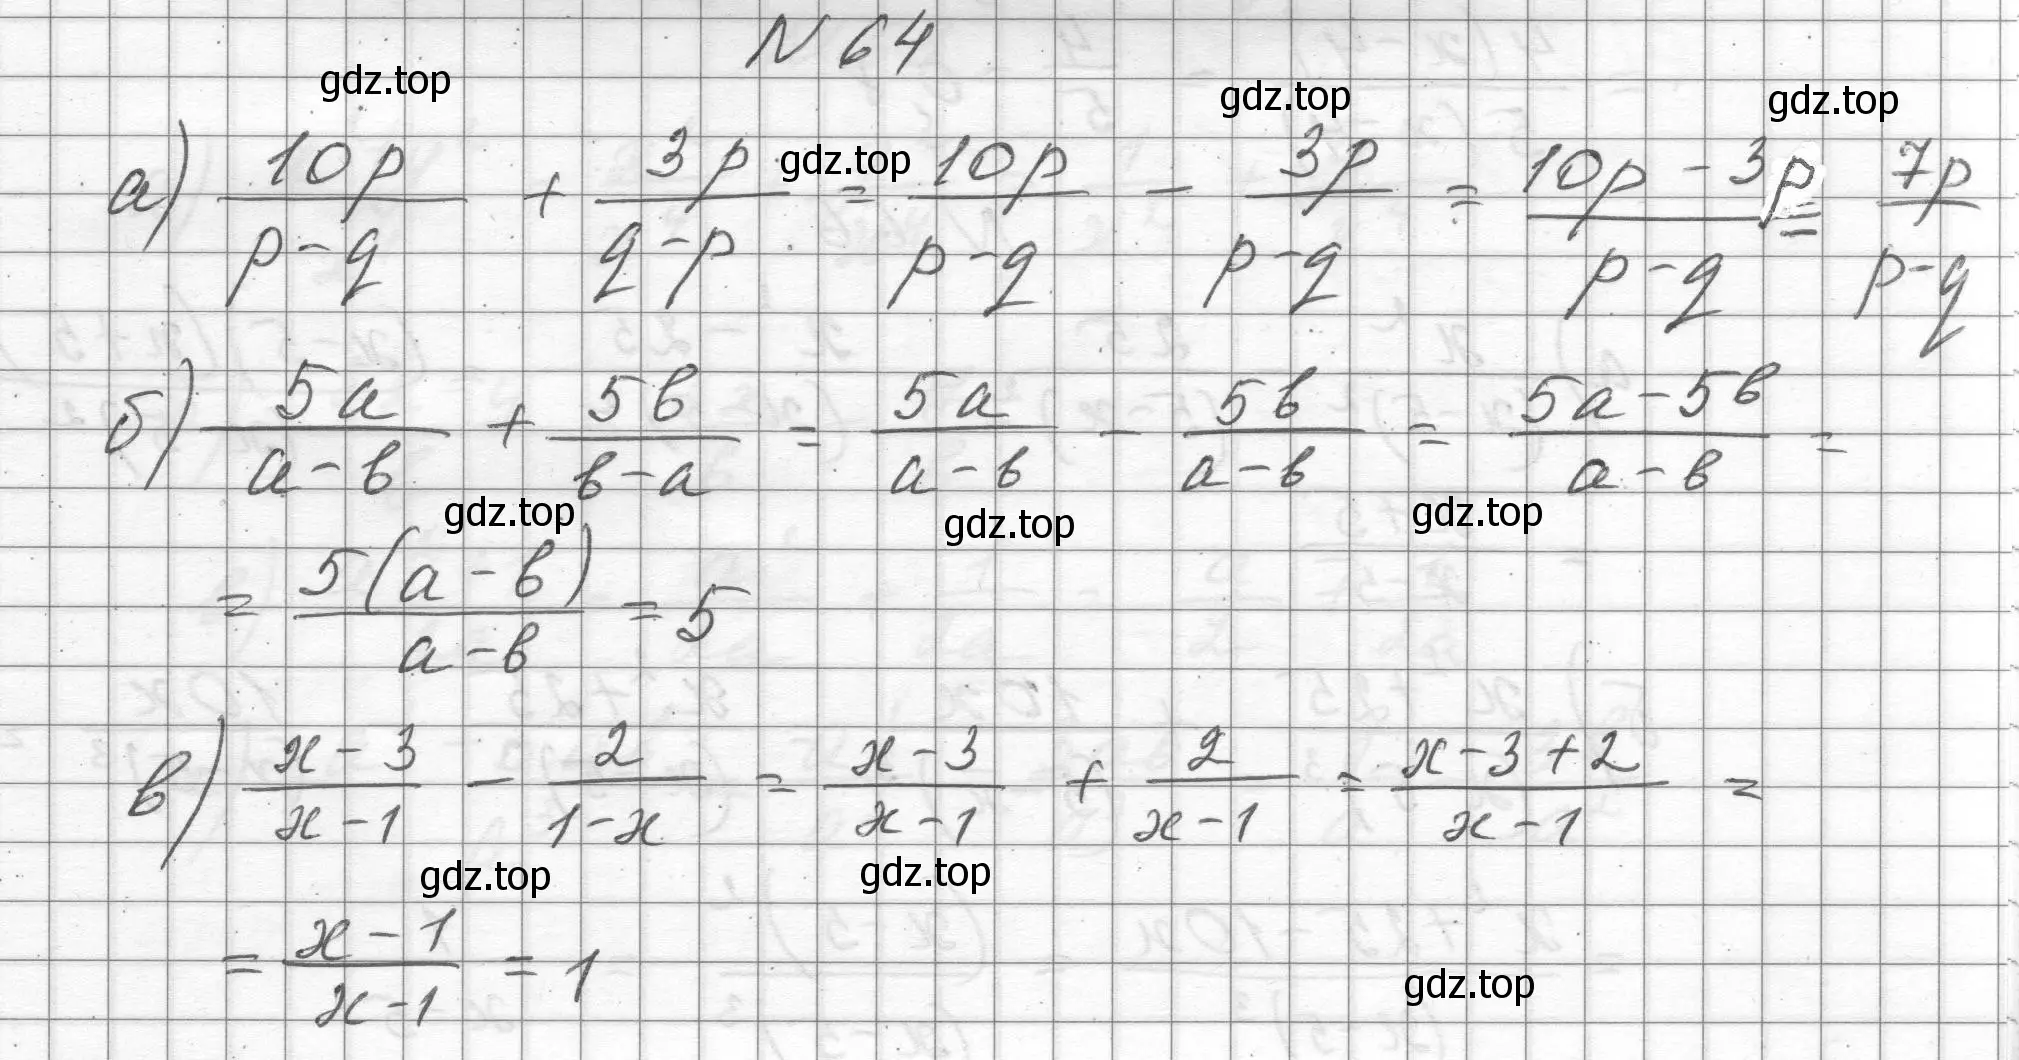 N 64
gdz.top gdz.top gdz.top gdz.top
а) 10p/(p-q) + 3p/(q-p) = 10p/(p-q) - 3p/(p-q) = (10p-3p)/(p-q) = 7p/(p-q)
б) 5a/(a-в) + 5в/(в-a) = 5a/(a-в) - 5в/(a-в) = (5a-5в)/(a-в) =
gdz.top gdz.top gdz.top
= 5(a-в)/(a-в) = 5
в) (x-3)/(x-1) - 2/(1-x) = (x-3)/(x-1) + 2/(x-1) = (x-3+2)/(x-1) =
gdz.top gdz.top
= (x-1)/(x-1) = 1
gdz.top